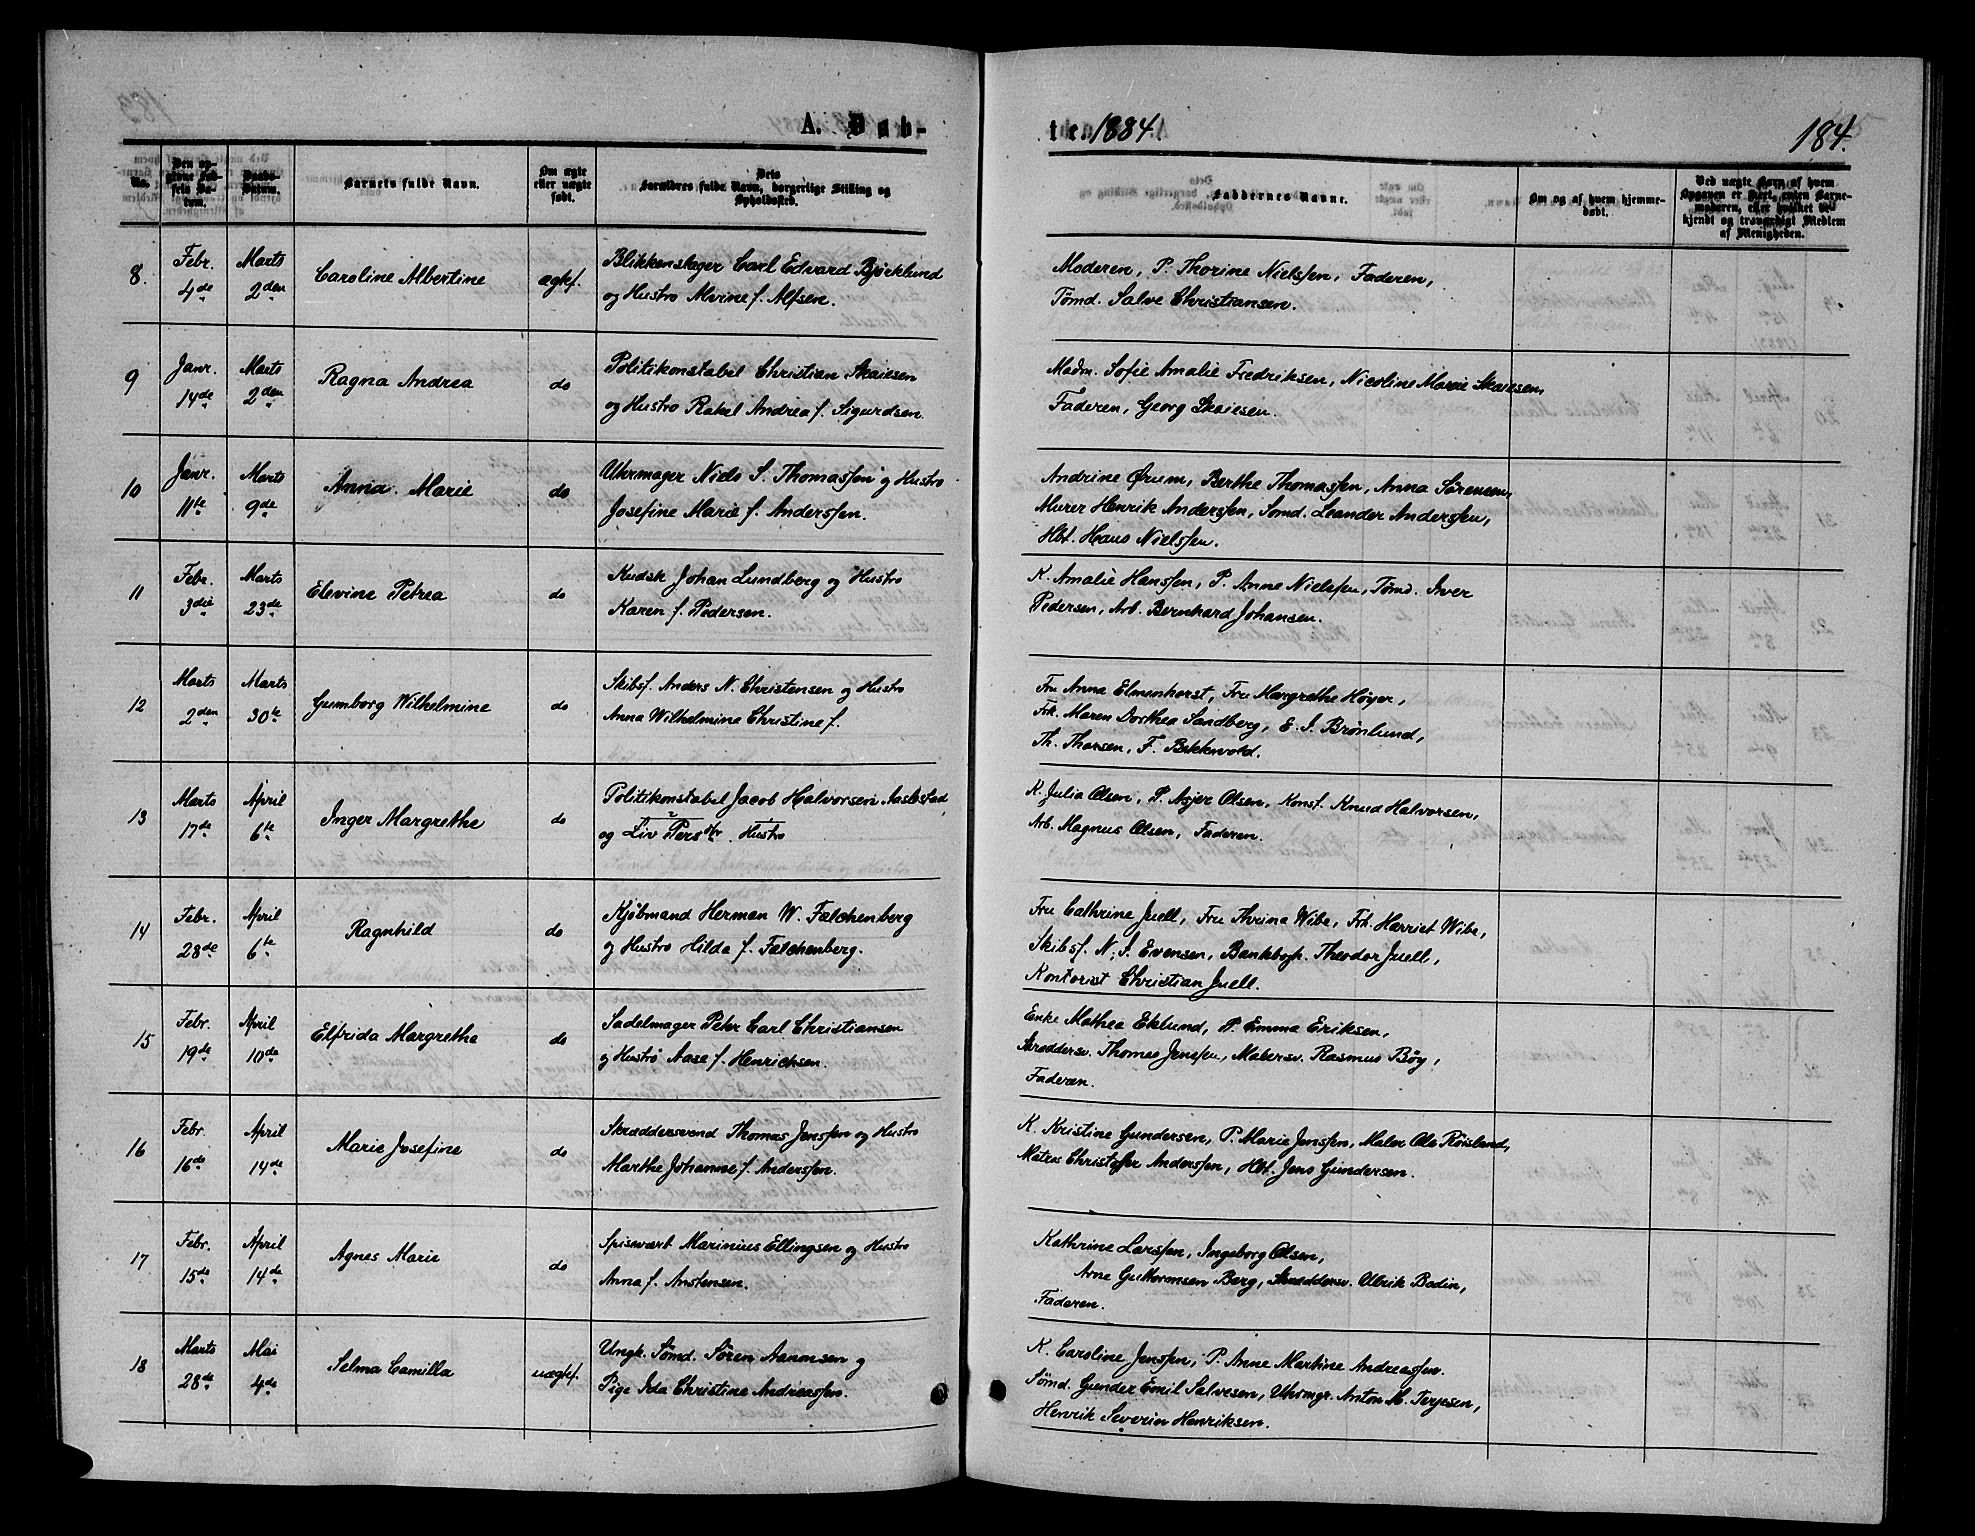 A. Døb-
te. 1884.
184.
No.
Den opgivne Fødsels Datum.
Daabs-Datum.
Barnets fulde Navn.
Om ægte eller uægte født.
Dets Forældres fulde Navn, borgerlige Stilling og Opholdssted.
Faddernes Navne.
Om og af hvem hjemmedøbt.
Ved uægte Børn af hvem Opgaven er skeet, enten Barnemoderen, eller hvilket bekjendt og troværdigt Medlem af Menigheden.
8. Febr. 4de Marts 2den Caroline Albertine ægtef. Blikkenslager Carl Edvard Bjørklund
og Hustro Alvine f. Alfsen.
Moderen, P. Thorine Nielssen, Faderen,
Tømd. Salve Christiansen.
9 Janr. 14de Marts 2den Ragna Andrea do Politikonstabel Christian Skaiesen
og Hustro Rakel Andrea f. Sigurdsen.
Madm. Sofie Amalie Fredriksen, Nicoline Marie Skaiesen,
Faderen, Georg Skaiesen.
10 Janr. 11te Marts 9de Anna Marie do Uhrmager Niels S. Thomassen og Hustro
Josefine Marie f. Anderssen.
Andrine Ørum, Berthe Thomassen, Anna Sørensen,
Murer Henrik Anderssen, Sømd. Leander Anderssen,
Hbt. Hans Nielssen.
11 Febr. 3die Marts 23de Elevine Petrea do Kudsk Johan Lundberg og Hustro
Karen f. Pedersen.
K. Amalie Hanssen, P. Anne Nielssen, Tømd. Iver
Pedersen, Arb. Bernhard Johansen.
12 Marts 2den Marts 30te Gumborg Wilhelmine do Skibsf. Anders N. Christensen og Hustro
Anna Wilhelmine Christine f.
Fru Anna Elmenhorst, Fru Margrethe Høyer,
Frk. Maren Dorthea Sandberg, E. I. Brønlund,
Th. Thorsen, F. Bekkevold.
13 Marts 17de April 6te Inger Margrethe do Politikonstabel Jacob Halvorsen Aaslestad
og Liv Persdtr. Hustro
K. Julia Olsen, P. Asjer Olsen, Konst. Knud Halvorsen,
Arb. Magnus Olsen, Faderen.
14 Febr. 28de April 6te Ragnhild do Kjöbmand Herman W. Falchenberg
og Hustro Hilda f. Falchenberg.
Fru Cathrine Juell, Fru Thrina Wibe, Frk. Harriet Wibe,
Skibsf. N. J. Evensen, Bankbogh. Theodor Juell,
Kontorist Christian Juell.
15 Febr. 19de April 10de Elfrida Margrethe do Sadelmager Peter Carl Christiansen
og Hustro Aase f. Henrichsen.
Enke Mathea Eklund, P. Emma Eriksen,
Skræddersv. Thomas Jenssen, Malersv. Rasmus Bøy,
Faderen.
16 Febr. 16de April 14de Marie Josefine do Skræddersvend Thomas Jenssen og Hustro
Marthe Johanne f. Anderssen.
K. Kristine Gundersen, P. Marie Jenssen, Maler Ole Røisland,
Matros Christofer Anderssen, Hbt. Jens Gundersen.
17 Febr. 15de April 14de Agnes Marie do Spisevært Marinius Ellingsen og Hustro
Anna f. Anstensen.
Kathrine Larssen, Ingeborg Olsen,
Arne Guttormsen Berg, Skræddersv. Ulrik Bodin,
Faderen.
18 Marts 28de Mai 4de Selma Camilla uægtef. Ungk. Sömd. Sören Aanonsen og
Pige Ida Christine Andreassen.
K. Caroline Jenssen, P. Anne Martine Andreassen.
Sömd. Gunder Emil Salvesen, Uhrmgr. Anton M. Terjesen,
Henrik Severin Henriksen.